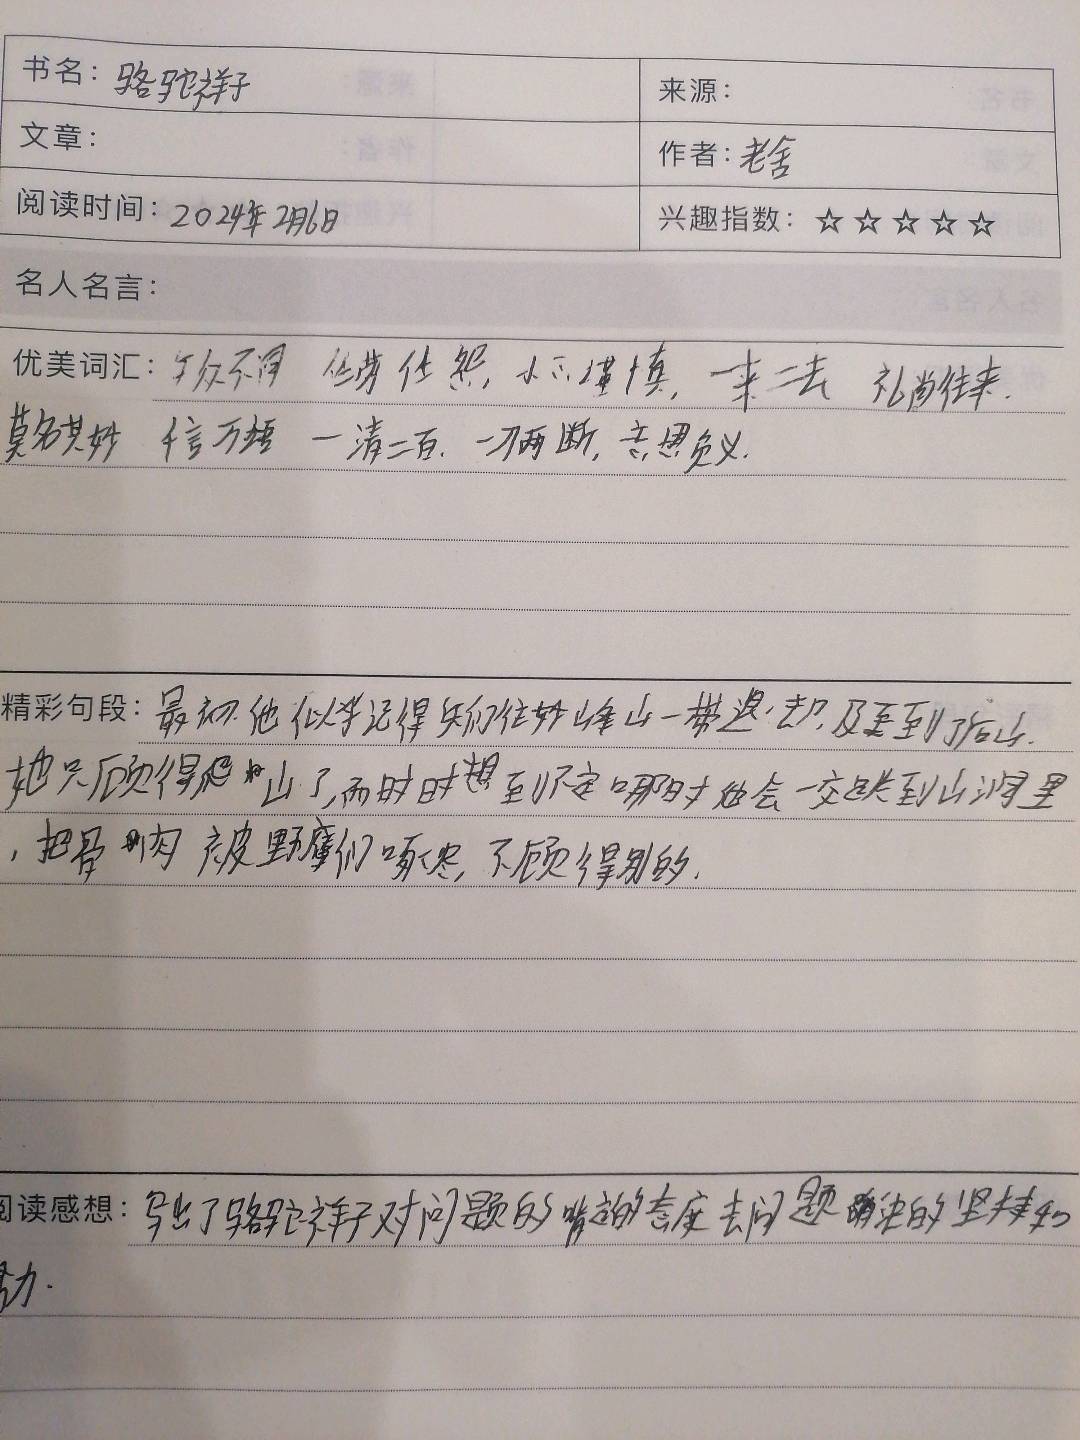 书名：骆驼祥子 来源：
文章： 作者：老舍
阅读时间：2024年2月6日 兴趣指数：☆☆☆☆☆
名人名言：
优美词汇：与众不同 任劳任怨，小心谨慎，一来二去 礼尚往来.
莫名其妙 千言万语 一清二白. 一刀两断, 忘恩负义.
精彩句段：最初.他似乎记得兵们往妙峰山一带退却,及至到了后山.
她只顾得爬山了,而时时想到不定哪时他会一交跌到山涧里
，把骨肉被野鹰们啄尽,不顾得别的.
阅读感想：写出了骆驼祥子对问题的的态度去问题解决的坚持和
努力.